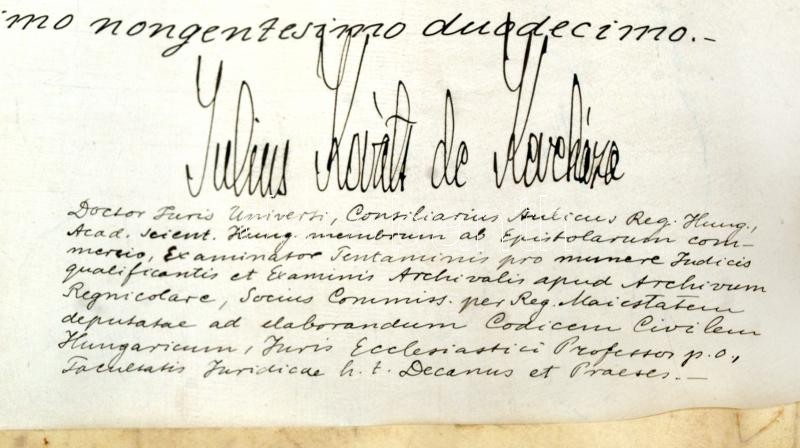 imo nongentesimo duodecimo.-
Julius Kováts de Keveháza
Doctor Juris Universi, Consiliarius Aulicus Reg. Hung.,
Acad. scient. Hung. membrum ab Epistolarum com-
mercio, Examinator Tentaminis pro munere Judicis
qualificantis et Examinis Archivalis apud Archivum
Regnicolare, Socius Commiss. per Reg. Maiestatem
deputatae ad elaborandum Codicem Civilem
Hungaricum, Juris Ecclesiastici Professor p.o.,
Facultatis Juridicae h. t. Decanus et Praeses.-